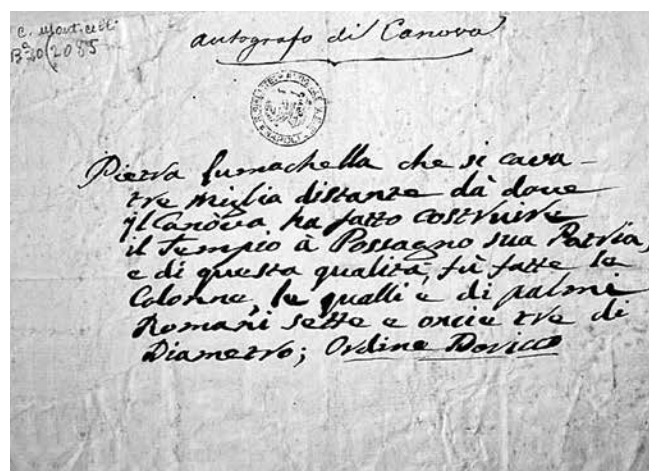 C. Monticelli
B.a 20 (2085
autografo di Canova
NAPOLI
Pietra lumachella che si cava
tre miglia distante dà dove
il Canòva ha fatto costruire
il Tempio à Possagno sua Patria,
e di questa qualità, fù fatte le
Colonne, le qualli è di palmi
Romani sette e oncie tre di
Diametro; Ordine Dorico